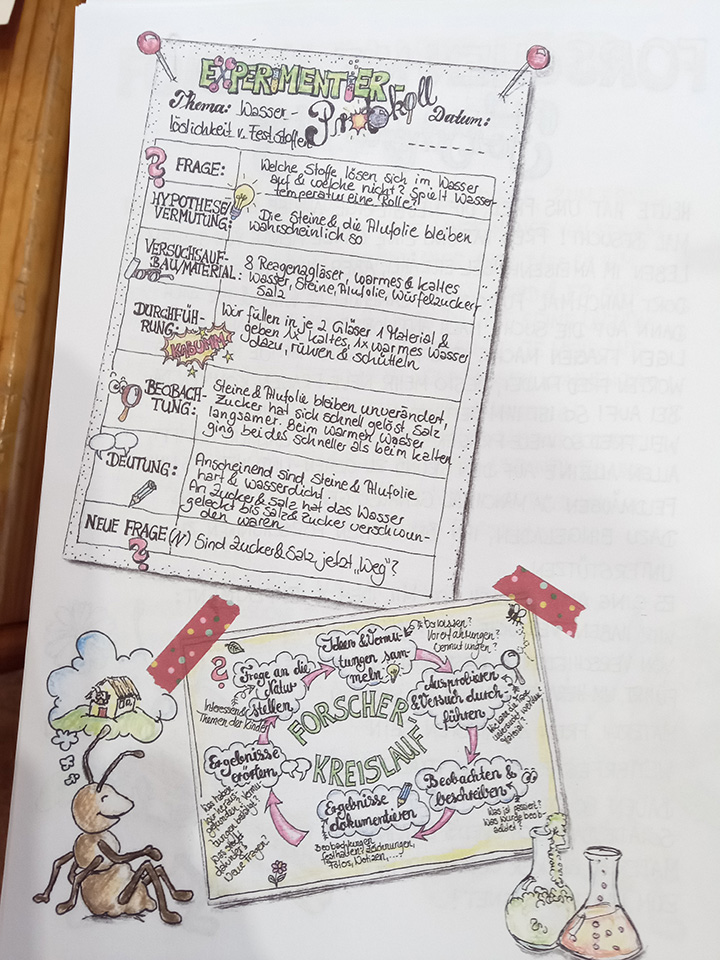 EXPERIMENTIER-
Protokoll
Thema: Wasser-
löslichkeit v. Feststoffen
Datum:
FRAGE:
Welche Stoffe lösen sich im Wasser
auf & welche nicht? Spielt Wasser-
temperatur eine Rolle?
HYPOTHESE/
VERMUTUNG:
Die Steine & die Alufolie bleiben
wahrscheinlich so
VERSUCHSAUF-
BAU/MATERIAL:
8 Reagenzgläser, warmes & kaltes
Wasser, Steine, Alufolie, Würfelzucker-
Salz
DURCHFÜH-
RUNG:
KABUMM
Wir füllen in je 2 Gläser 1 Material &
geben 1x kaltes, 1x warmes Wasser
dazu, rühren & schütteln
BEOBACH-
TUNG:
Steine & Alufolie bleiben unverändert,
Zucker hat sich schnell gelöst, Salz
langsamer. Beim warmen Wasser
ging beides schneller als beim kalten
DEUTUNG:
Anscheinend sind Steine & Alufolie
hart & wasserdicht.
An Zucker & Salz hat das Wasser
geleckt bis Salz & Zucker verschwun-
den waren
NEUE FRAGE(N)
Sind Zucker & Salz jetzt „Weg"?
FORSCHER-
KREISLAUF
Frage an die
Natur
stellen
Interessen &
Themen der Kinder
Ideen & Vermu-
tungen sam-
meln
Vorwissen?
Vorerfahrungen?
Vermutungen?
Ausprobieren
& Versuch durch-
führen
Wie kann die Frage
untersucht werden?
Material?
Beobachten &
beschreiben
Was ist passiert?
Was wurde beob-
achtet?
Ergebnisse
dokumentieren
Beobachtungen
festhalten? Zeichnungen,
Fotos, Notizen,...?
Ergebnisse
erörtern
Was haben
wir heraus-
gefunden?
Neue Fragen?